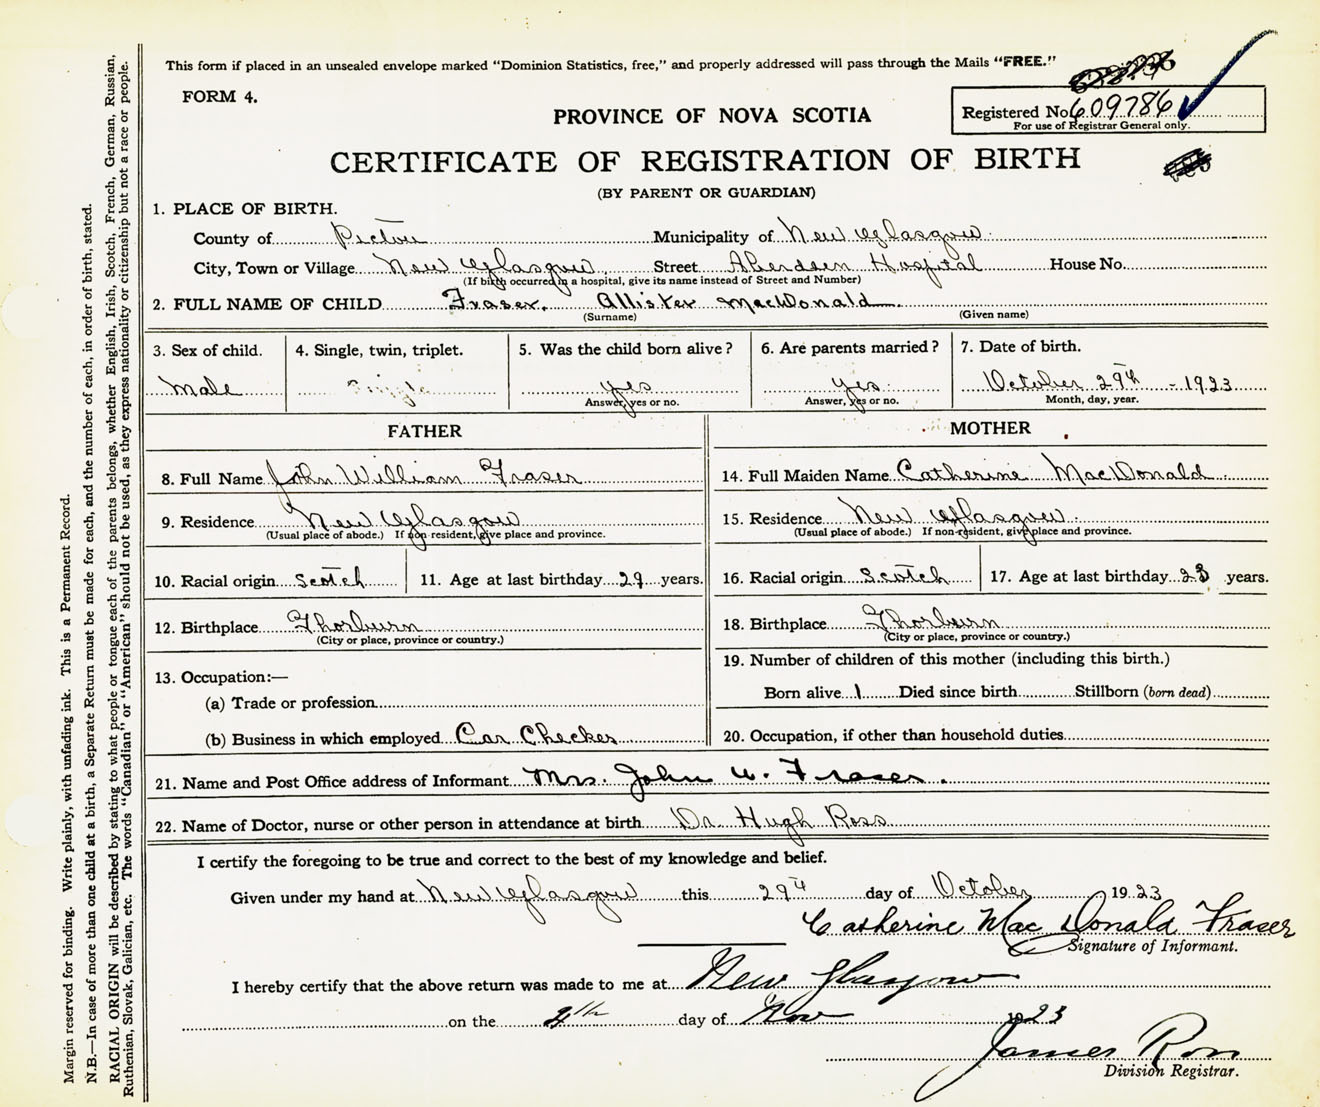 This form if placed in an unsealed envelope marked "Dominion Statistics, free," and properly addressed will pass through the Mails "FREE."
FORM 4.
PROVINCE OF NOVA SCOTIA
Registered No. 609786
For use of Registrar General only.
CERTIFICATE OF REGISTRATION OF BIRTH
(BY PARENT OR GUARDIAN)
1. PLACE OF BIRTH.
County of Pictou Municipality of New Glasgow
City, Town or Village New Glasgow Street Aberdeen Hospital House No.
(If birth occurred in a hospital, give its name instead of Street and Number)
2. FULL NAME OF CHILD Fraser, Allister MacDonald
(Surname) (Given name)
3. Sex of child. 4. Single, twin, triplet. 5. Was the child born alive? 6. Are parents married? 7. Date of birth.
Male Single yes yes October 29th - 1923
Answer, yes or no. Answer, yes or no. Month, day, year.
FATHER MOTHER
8. Full Name John William Fraser 14. Full Maiden Name Catherine MacDonald
9. Residence New Glasgow 15. Residence New Glasgow
(Usual place of abode.) If non-resident, give place and province. (Usual place of abode.) If non-resident, give place and province.
10. Racial origin Scotch 11. Age at last birthday 29 years. 16. Racial origin Scotch 17. Age at last birthday 23 years.
12. Birthplace Thorburn 18. Birthplace Thorburn
(City or place, province or country.) (City or place, province or country.)
13. Occupation:— 19. Number of children of this mother (including this birth.)
(a) Trade or profession Born alive 1 Died since birth Stillborn (born dead)
(b) Business in which employed Car Checker 20. Occupation, if other than household duties
21. Name and Post Office address of Informant Mrs. John W. Fraser.
22. Name of Doctor, nurse or other person in attendance at birth Dr. Hugh Ross
I certify the foregoing to be true and correct to the best of my knowledge and belief.
Given under my hand at New Glasgow this 29th day of October 1923
Catherine MacDonald Fraser
Signature of Informant.
I hereby certify that the above return was made to me at New Glasgow
on the day of Nov 1923
James Ross
Division Registrar.
Margin reserved for binding. Write plainly, with unfading ink. This is a Permanent Record.
N.B.—In case of more than one child at a birth, a Separate Return must be made for each, and the number of each, in order of birth, stated.
RACIAL ORIGIN will be described by stating to what people or tongue each of the parents belongs, whether English, Irish, Scotch, French, German, Russian,
Ruthenian, Slovak, Galician, etc. The words "Canadian" or "American" should not be used, as they express nationality or citizenship but not a race or people.